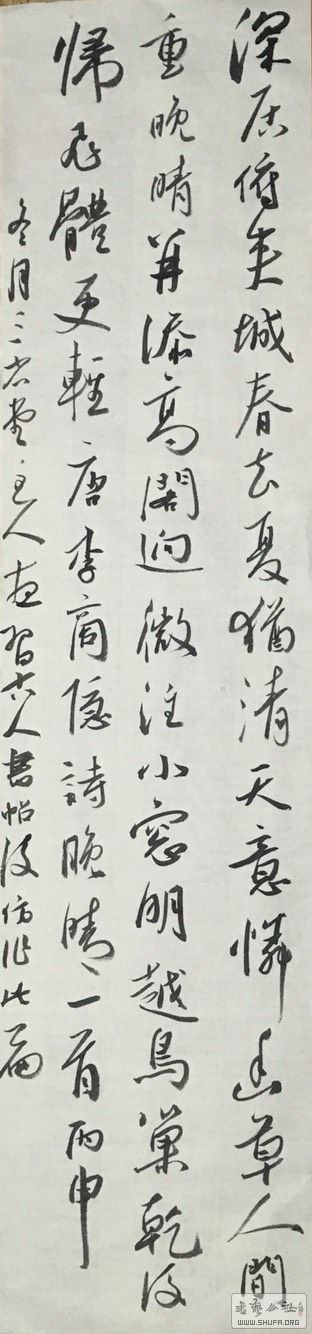 深居俯夹城春去夏猶清天意憐幽草人間
重晚晴并添高閣迥微注小窓明越鳥巢乾後
帰飛體更輕唐李商隐詩晚晴一首丙申
冬月三省堂主人夜習古人書帖後仿作此篇
WWW.SHUFA.ORG